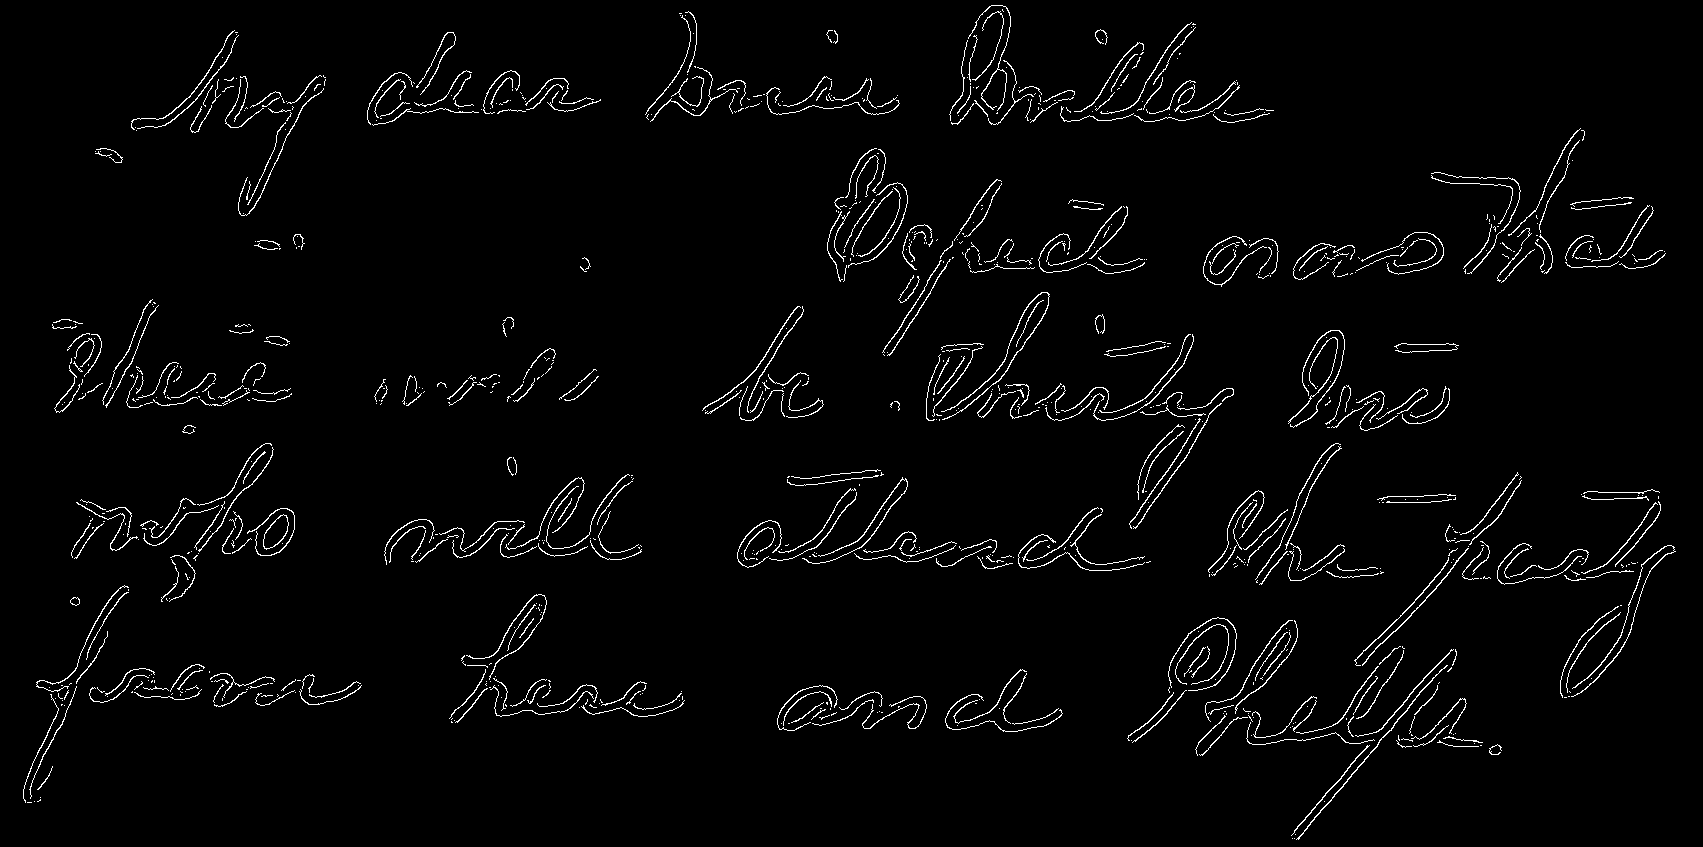 My dear Miss Miller
Expect now that
there will be thirty two
who will attend the party
from here and Phelps.